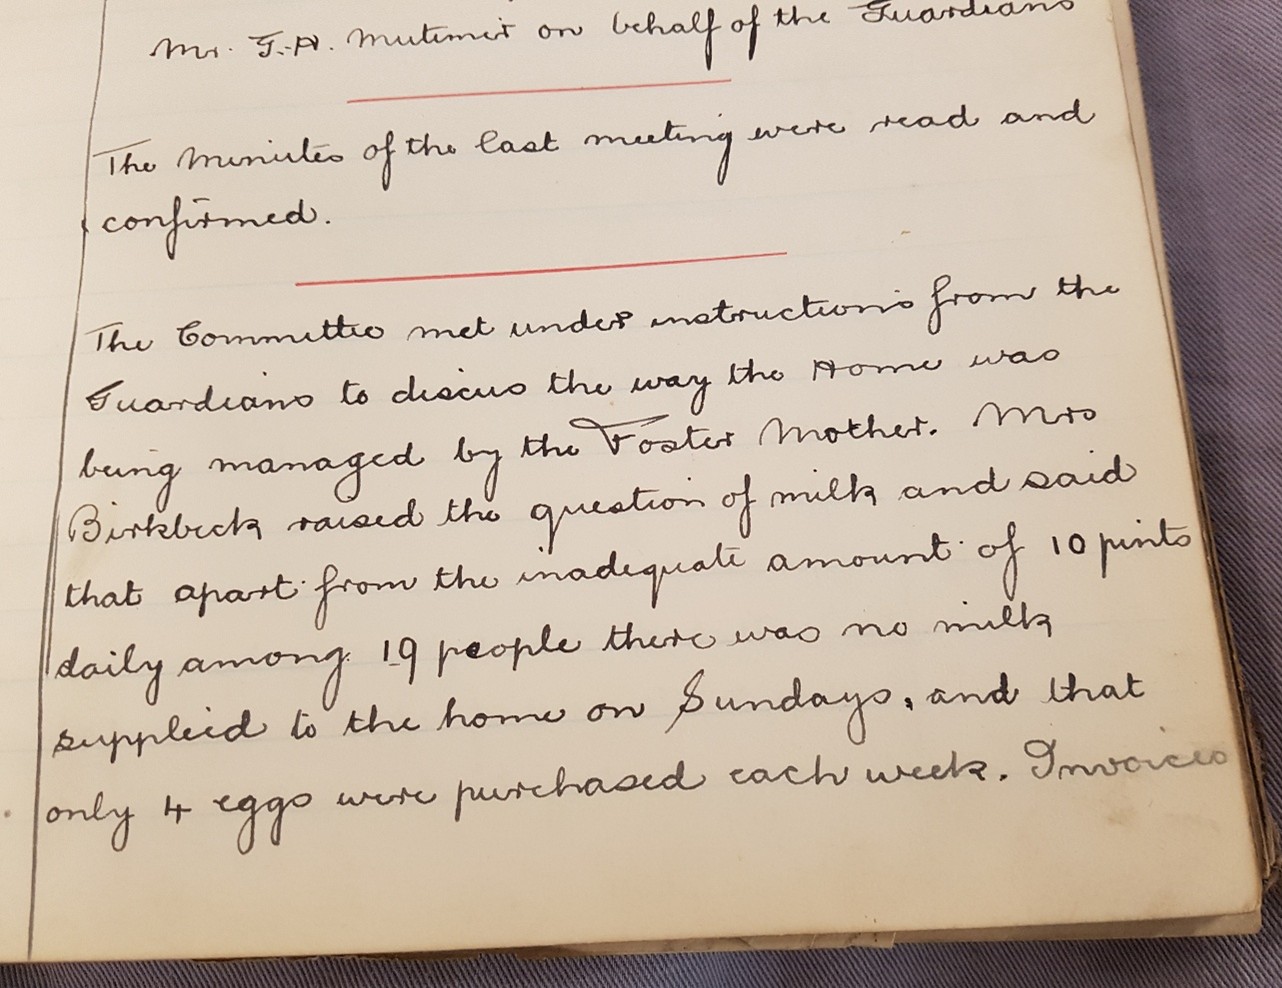 Mr. G. H. Mutimer on behalf of the Guardians
The Minutes of the last meeting were read and
confirmed.
The Committee met under instructions from the
Guardians to discus the way the Home was
being managed by the Foster Mother. Mrs
Birkbeck raised the question of milk and said
that apart from the inadequate amount of 10 pints
daily among 19 people there was no milk
supplied to the home on Sundays, and that
only 4 eggs were purchased each week. Invoices